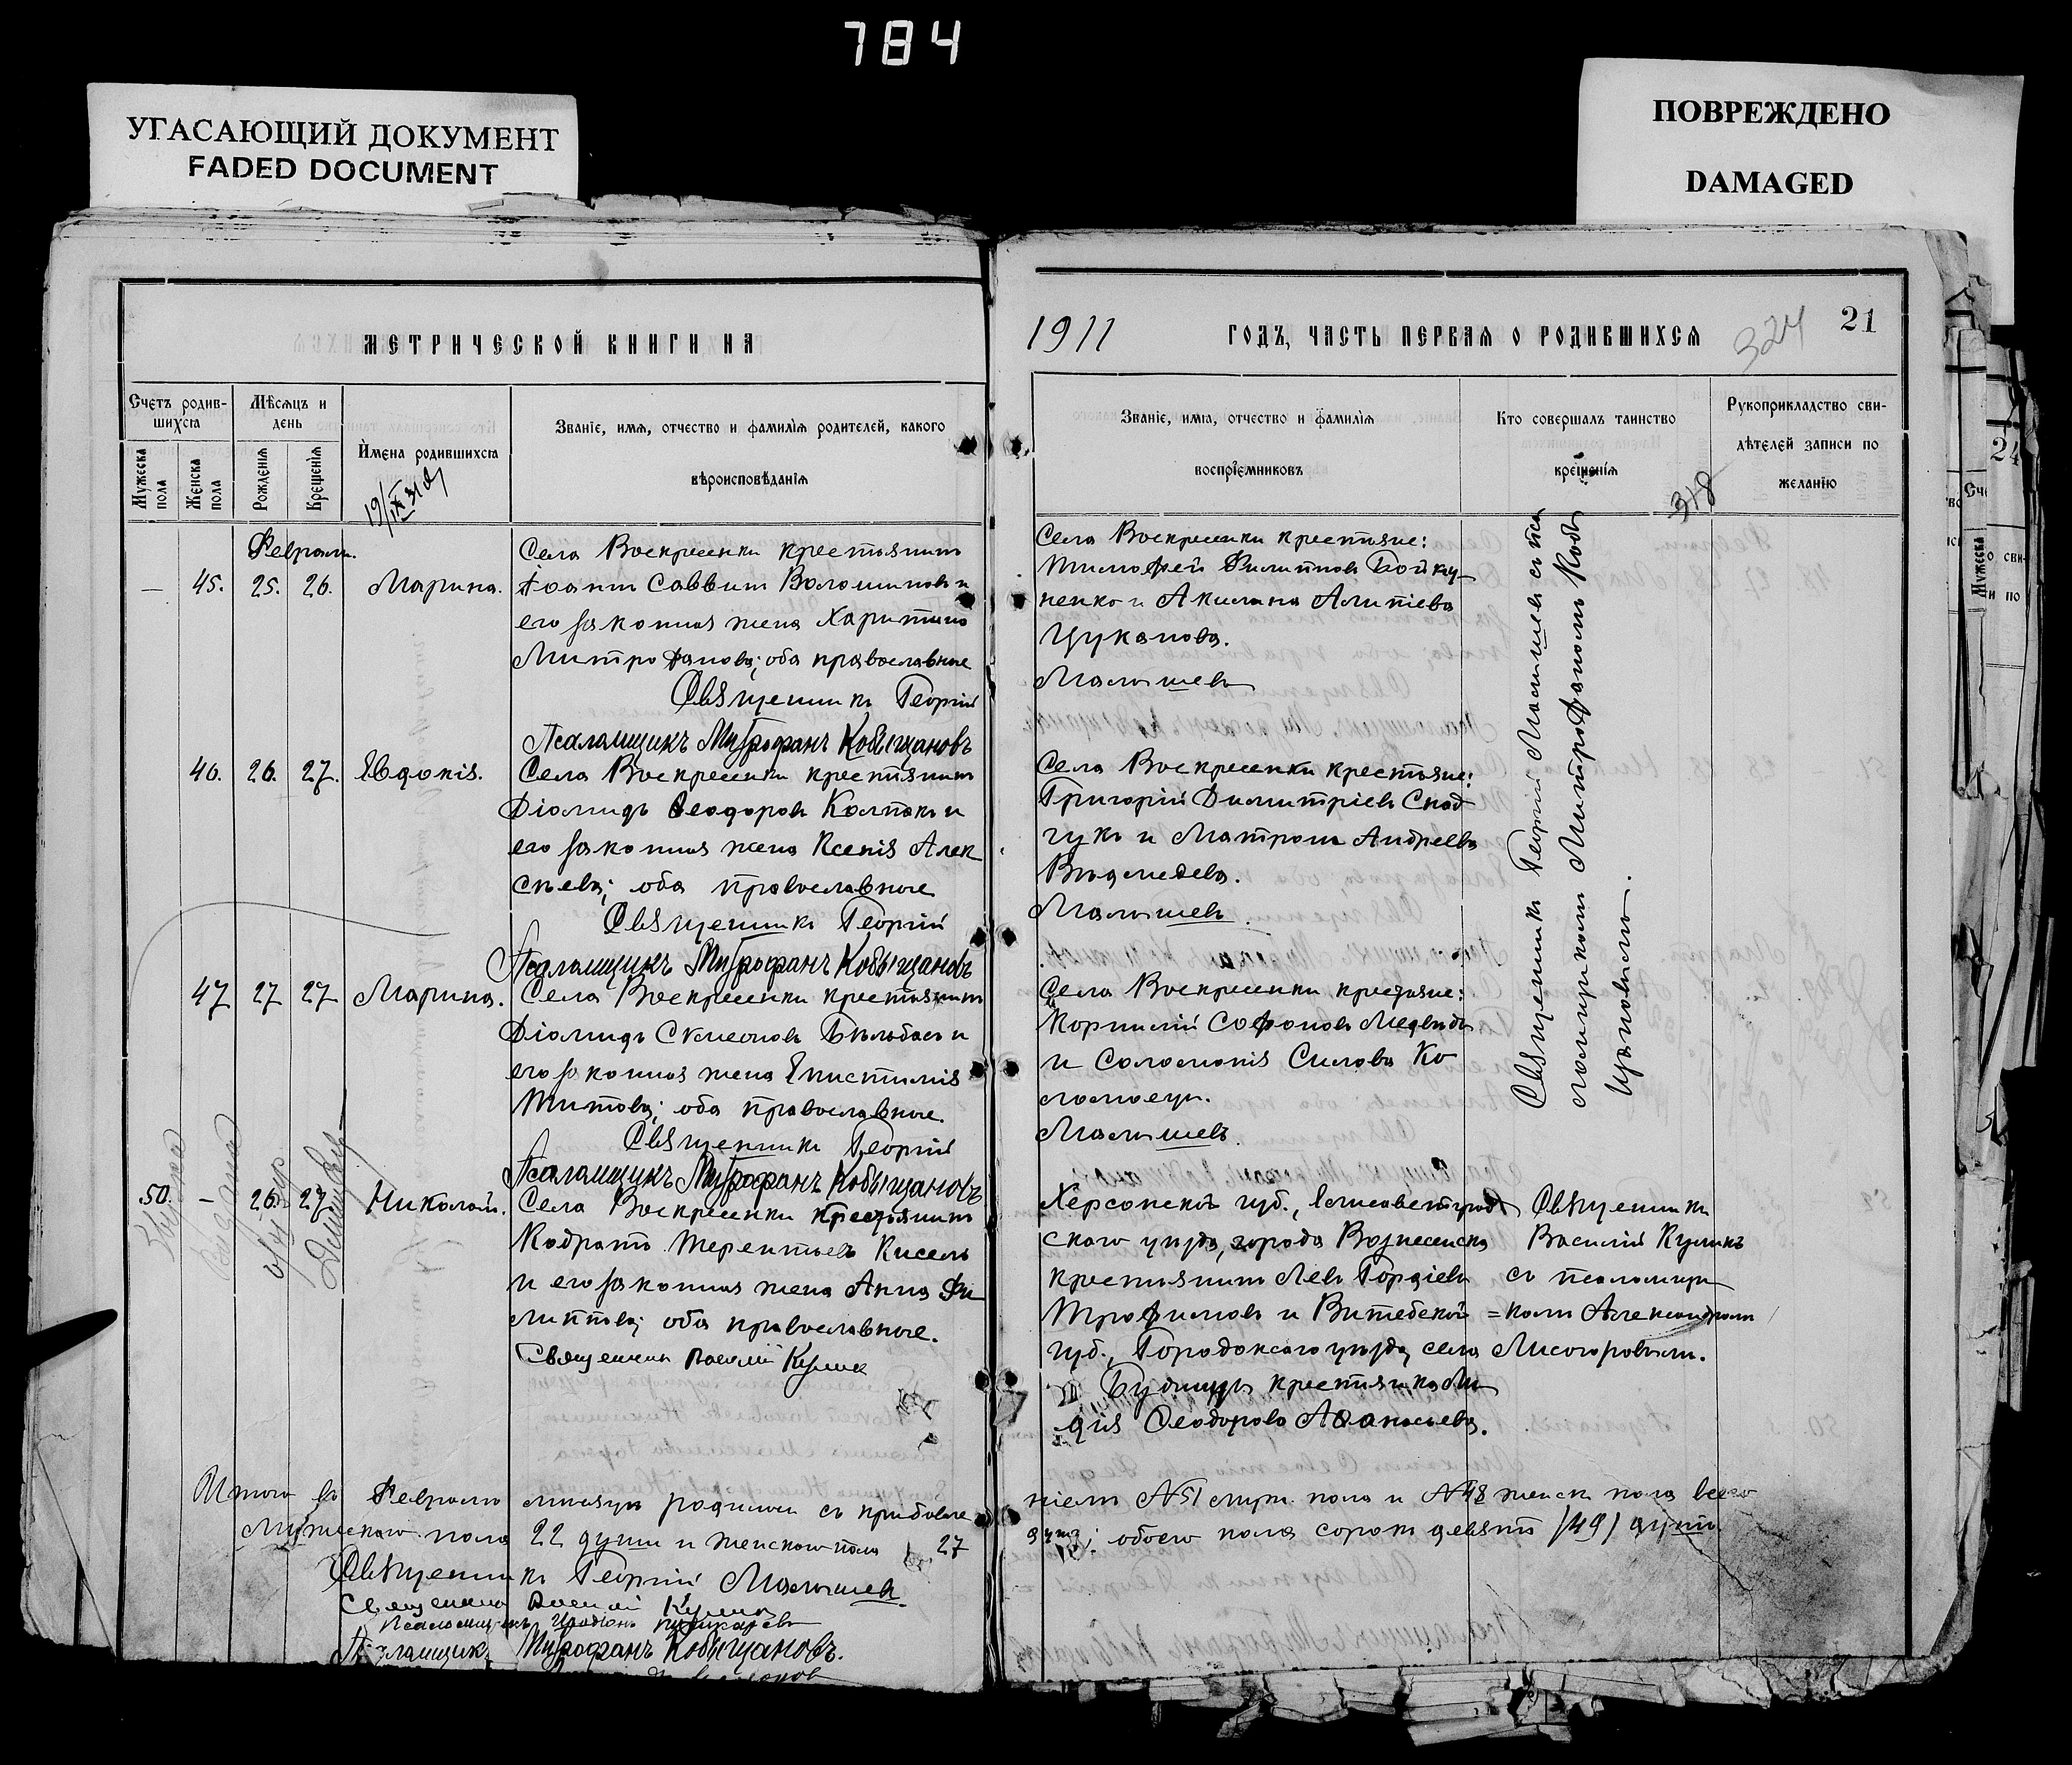 784
УГАСАЮЩИЙ ДОКУМЕНТ
FADED DOCUMENT
ПОВРЕЖДЕНО
DAMAGED
МЕТРИЧЕСКОЙ КНИГИ НА
Счетъ родив-
шихся
Мѣсяцъ и
день
Мужеска
пола
Женска
пола
Рожденія
Крещенія
Имена родившихся
Званіе, имя, отчество и фамилія родителей, какого
вѣроисповѣданія
Февраль.
— 45. 25. 26. Марина.
Села Воскресенки крестьянинъ
Іоаннъ Саввинъ Волошиновъ и
его законная жена Харитина
Митрофанова; оба православные
Священникъ Георгій
Псаломщикъ Митрофанъ Кобыщановъ
46. 26. 27. Евдокія.
Села Воскресенки крестьянинъ
Діомидъ Ѳеодоровъ Колпакъ и
его законная жена Ксенія Алек
сѣева; оба православные
Священникъ Георгій
Псаломщикъ Митрофанъ Кобыщановъ
47 27 27 Марина.
Села Воскресенки крестьянинъ
Діомидъ Сѵмеоновъ Бѣльбасъ и
его законная жена Епистимія
Титова; оба православные.
Священникъ Георгій
Псаломщикъ Митрофанъ Кобыщановъ
50. — 26. 27 Николай.
Села Воскресенки крестьянинъ
Кодратъ Терентьевъ Кисель
и его законная жена Анна Фи
липпова; оба православные.
Священникъ Василій Куликъ
Итого въ Февралѣ мѣсяцѣ родилось съ прибавле
Мужескаго пола 22 души и женскаго пола 27
Священникъ Георгій Малышевъ
Священникъ Василій Куликъ
Псаломщикъ
Псаломщикъ Митрофанъ Кобыщановъ.
1911 ГОДЪ, ЧАСТЬ ПЕРВАЯ О РОДИВШИХСЯ
324
21
Званіе, имя, отчество и фамилія
воспріемниковъ
Кто совершалъ таинство
крещенія
318
Рукоприкладство сви-
дѣтелей записи по
желанію
Села Воскресенки крестьяне:
Тимофей Филиповъ Бойку-
ненко и Акилина Алипіева
Цуканова.
Малышевъ
Села Воскресенки крестьяне:
Григорій Димитріевъ Снад
чукъ и Матрона Андреева
Малышевъ
Села Воскресенки крестьяне:
Корнилій Софоновъ Медвѣдь
и Соломонія Силова Ко
ломоецъ.
Малышевъ.
Священникъ Георгій Малышевъ съ пса
ломщикомъ Митрофаномъ Кобы
щановымъ.
Херсонской губ., Елисаветград
скаго уѣзда, города Вознесенска
крестьянинъ Левъ Гордіевъ
Трофимовъ и Витебской
губ., Городокскаго уѣзда, села
крестьянка Ли
дія Ѳеодорова Аѳанасьева.
Священникъ
Василій Куликъ
съ псаломщи
=комъ Александромъ
Лисогоровымъ.
ніемъ №51 муж. пола и №48 женск пола всего
обоего пола сорокъ девять /49/ душъ.
24